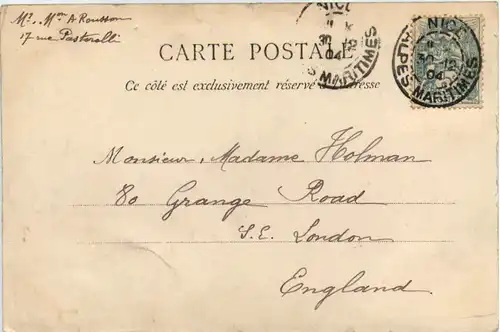 Mr. Mme A Rousson
17 rue Pastorelli
CARTE POSTALE
Ce côté est exclusivement réservé à l'adresse
NICE
30
04
MARITIMES
NICE
30
04
ALPES-MARITIMES
Monsieur, Madame Holman
80 Grange Road
S.E. London
England